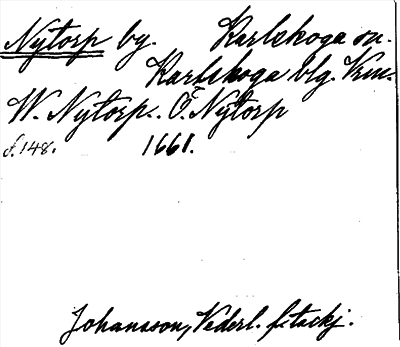 Nytorp by. Karlskoga sn.
Karlskoga blg. Vrm.
W. Nytorp. Ö. Nytorp
f. 148. 1661.
Johansson, Vederl. f. tackj.